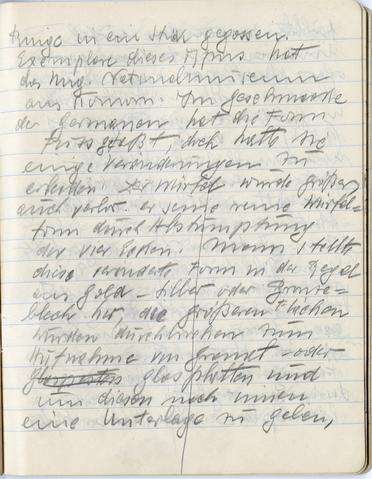 Ringe in ein Stück gegossen.
Exemplare dieses Typus hat
das Ung. Nationalmuseum
aus Komorn. Im Geschmacke
der Germanen hat die Form
Fuss gefaßt, doch hatte sie
einige Veränderungen zu
erleiden. Der Würfel wurde größer
auch verlor er seine reine Würfel-
form durch Abstumpfung
der vier Ecken. Mann stellte
diese veränderte Form in der Regel
aus Gold- Silber oder Bronze-
blech her, die größeren Flächen
wurden durchbrochen zum
Aufnahme von Granat- oder
glasplatten und
um diesen nach innen
eine Unterlage zu geben,